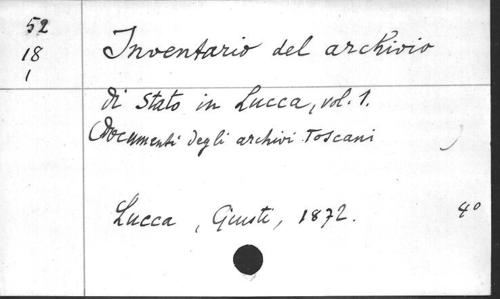 52
18
1
Inventario del archivio
di Stato in Lucca, vol. 1.
(Documenti degli archivi Toscani
Lucca, Giusti, 1872.
4°